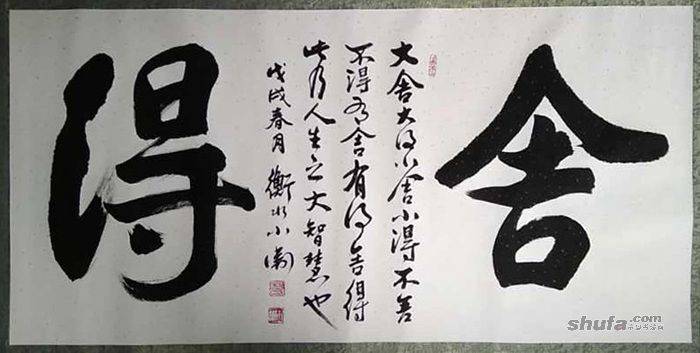 舍
得
大舍大得小舍小得不舍
不得有舍有得舍得
此乃人生之大智慧也
戊戌春月 衡水小
shufa.com